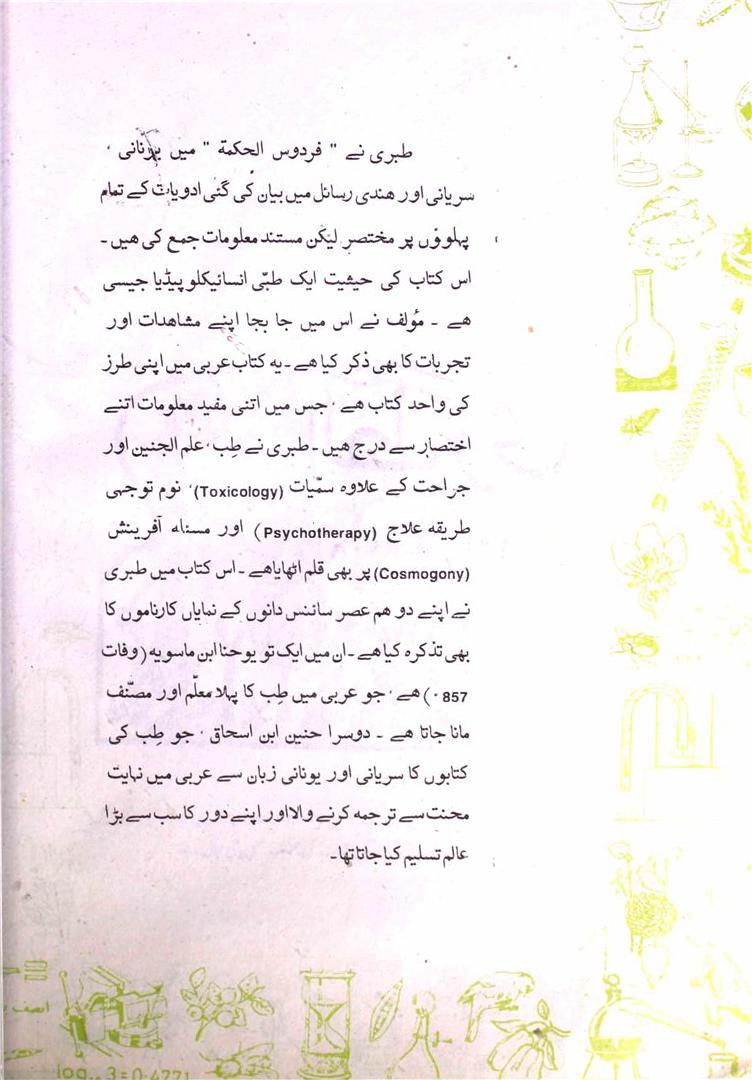 طبری نے " فردوس الحکمة " میں یونانی ،
سریانی اور ھندی رسائل میں بیان کی گئی ادویات کے تمام
پہلوؤں پر مختصر لیکن مستند معلومات جمع کی ھیں ۔
اس کتاب کی حیثیت ایک طبّی انسائیکلوپیڈیا جیسی
ھے ۔ مؤلف نے اس میں جا بجا اپنے مشاھدات اور
تجربات کا بھی ذکر کیا ھے ۔ یه کتاب عربی میں اپنی طرز
کی واحد کتاب ھے ، جس میں اتنی مفید معلومات اتنے
اختصار سے درج ھیں ۔ طبری نے طِب ، علم الجنین اور
جراحت کے علاوہ سمّیات (Toxicology)، نوم توجہی
طریقه علاج (Psychotherapy) اور مسئله آفرینش
(Cosmogony) پر بھی قلم اٹھایا ھے ۔ اس کتاب میں طبری
نے اپنے دو ھم عصر سائنس دانوں کے نمایاں کارناموں کا
بھی تذکرہ کیا ھے ۔ ان میں ایک تو یوحنا ابن ماسویه (وفات
857 ء) ھے ، جو عربی میں طِب کا پہلا معلّم اور مصنّف
مانا جاتا ھے ۔ دوسرا حنین ابن اسحاق ، جو طِب کی
کتابوں کا سریانی اور یونانی زبان سے عربی میں نہایت
محنت سے ترجمه کرنے والا اور اپنے دور کا سب سے بڑا
عالم تسلیم کیا جاتا تھا ۔
log 3=0.4771